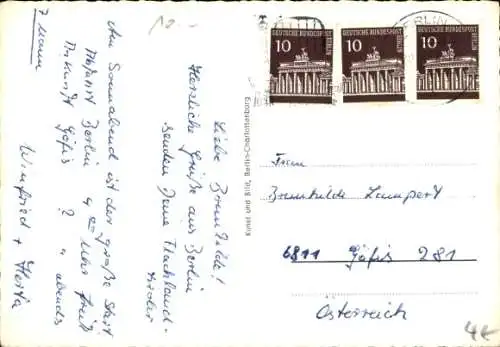 12.-
Liebe Brunhilde!
Herzliche Grüße aus Berlin
senden Deine Flachland-
tiroler
Am Sonnabend ist der große Start
Abfahrt Berlin 4 00 Uhr früh
Ankunft Göfis ? " abends
Winfried + Herta
Kunst und Bild, Berlin-Charlottenburg
DEUTSCHE BUNDESPOST
BERLIN
10
DEUTSCHE BUNDESPOST
BERLIN
10
DEUTSCHE BUNDESPOST
BERLIN
10
BERLIN
Frau
Brunhilde Lampert
6811 Göfis 281
Österreich
4€